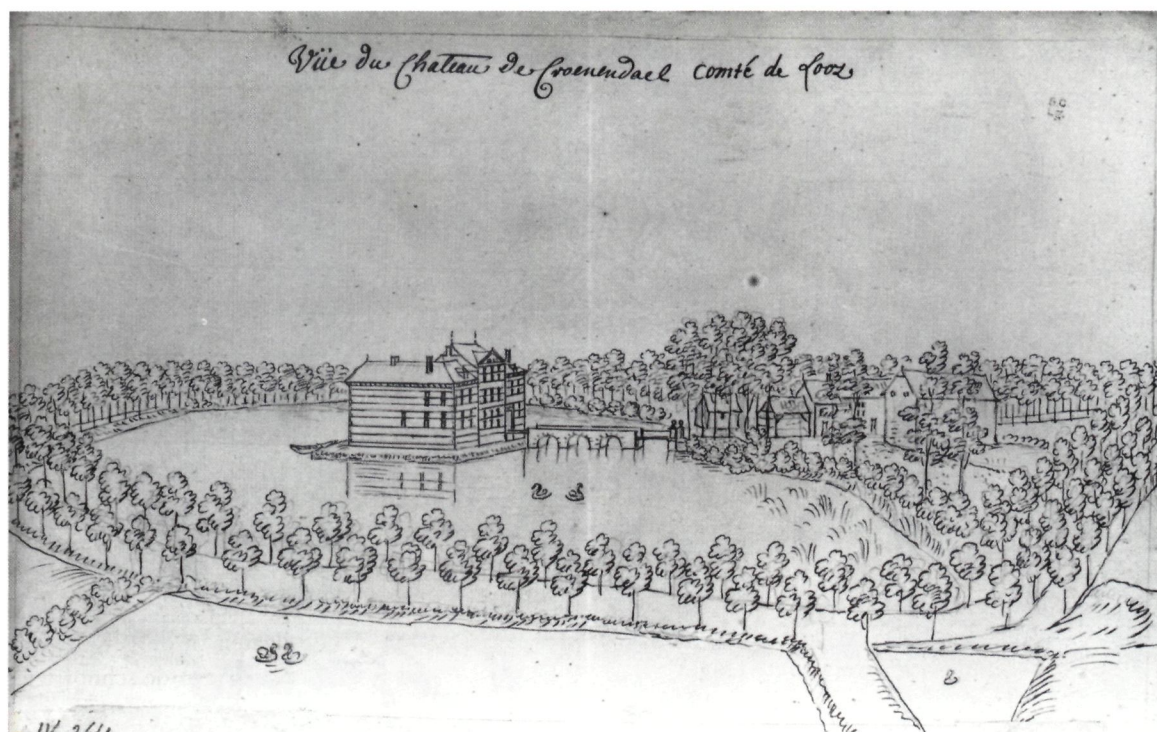 Vüe du Chateau de Croenendael comté de Looz